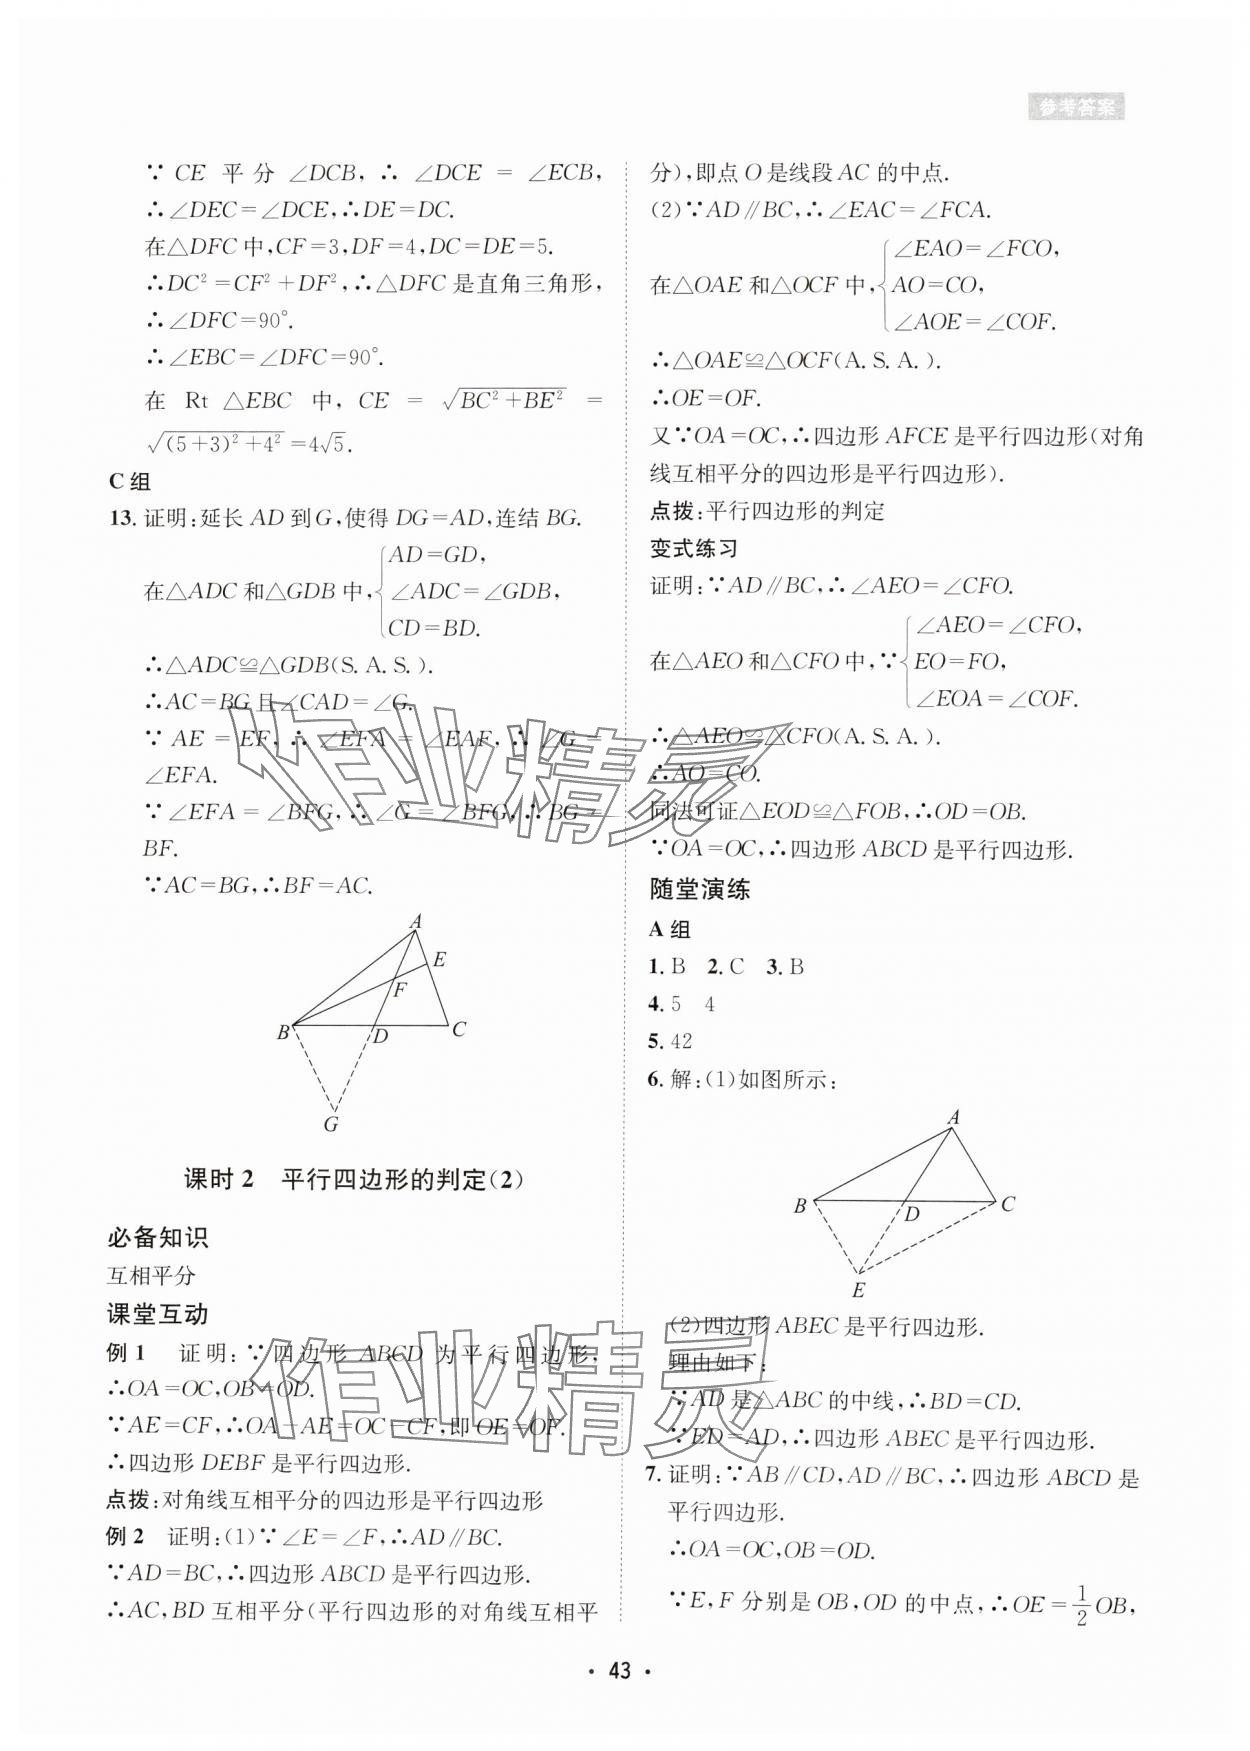 参考答案
∵CE 平分∠DCB,∴∠DCE=∠ECB,
∴∠DEC=∠DCE,∴DE=DC.
在△DFC中,CF=3,DF=4,DC=DE=5.
∴DC²=CF²+DF²,∴△DFC是直角三角形,
∴∠DFC=90°.
∴∠EBC=∠DFC=90°.
在 Rt△EBC 中,CE=√(BC²+BE²)=
√((5+3)²+4²)=4√5.
C组
13.证明:延长AD到G,使得DG=AD,连结BG.
在△ADC和△GDB中,{AD=GD,
∠ADC=∠GDB,
CD=BD.
∴△ADC≌△GDB(S.A.S.).
∴AC=BG且∠CAD=∠G.
∵AE=EF,∴∠EFA=∠EAF,∴∠G=
∠EFA.
∵∠EFA=∠BFG,∴∠G=∠BFG,∴BG=
BF.
∵AC=BG,∴BF=AC.
A
E
F
B
D
C
G
课时2 平行四边形的判定(2)
必备知识
互相平分
课堂互动
例1 证明:∵四边形ABCD为平行四边形,
∴OA=OC,OB=OD.
∵AE=CF,∴OA-AE=OC-CF,即OE=OF.
∴四边形DEBF是平行四边形.
点拨:对角线互相平分的四边形是平行四边形
例2 证明:(1)∵∠E=∠F,∴AD∥BC.
∵AD=BC,∴四边形ABCD是平行四边形.
∴AC,BD互相平分(平行四边形的对角线互相平
分),即点O是线段AC的中点.
(2)∵AD∥BC,∴∠EAC=∠FCA.
在△OAE和△OCF中,{∠EAO=∠FCO,
AO=CO,
∠AOE=∠COF.
∴△OAE≌△OCF(A.S.A.).
∴OE=OF.
又∵OA=OC,∴四边形AFCE是平行四边形(对角
线互相平分的四边形是平行四边形).
点拨:平行四边形的判定
变式练习
证明:∵AD∥BC,∴∠AEO=∠CFO.
在△AEO和△CFO中,∵{∠AEO=∠CFO,
EO=FO,
∠EOA=∠COF.
∴△AEO≌△CFO(A.S.A.).
∴AO=CO.
同法可证△EOD≌△FOB,∴OD=OB.
∵OA=OC,∴四边形ABCD是平行四边形.
随堂演练
A组
1.B 2.C 3.B
4.5 4
5.42
6.解:(1)如图所示:
A
B
D
C
E
(2)四边形ABEC是平行四边形.
理由如下:
∵AD是△ABC的中线,∴BD=CD.
∵ED=AD,∴四边形ABEC是平行四边形.
7.证明:∵AB∥CD,AD∥BC,∴四边形ABCD是
平行四边形.
∴OA=OC,OB=OD.
∵E,F分别是OB,OD的中点,∴OE=1/2OB,
·43·
作业精灵
作业精灵